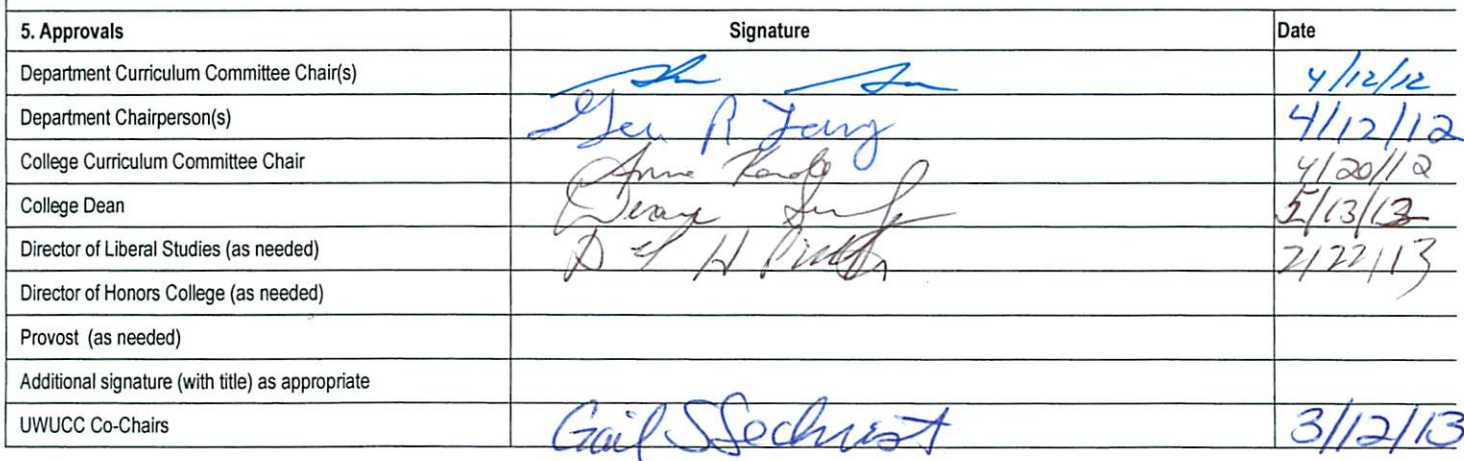 5. Approvals Signature Date
Department Curriculum Committee Chair(s) 4/12/12
Department Chairperson(s) R 4/12/12
College Curriculum Committee Chair Anne 4/20/12
College Dean
Director of Liberal Studies (as needed) D H 2/22/13
Director of Honors College (as needed)
Provost (as needed)
Additional signature (with title) as appropriate
UWUCC Co-Chairs Gail S Sechrist 3/12/13